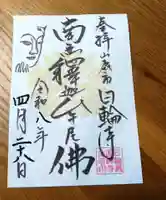 奉拝 山形市 日輪寺
南無釋迦牟尼佛
令和八年
四月二六日